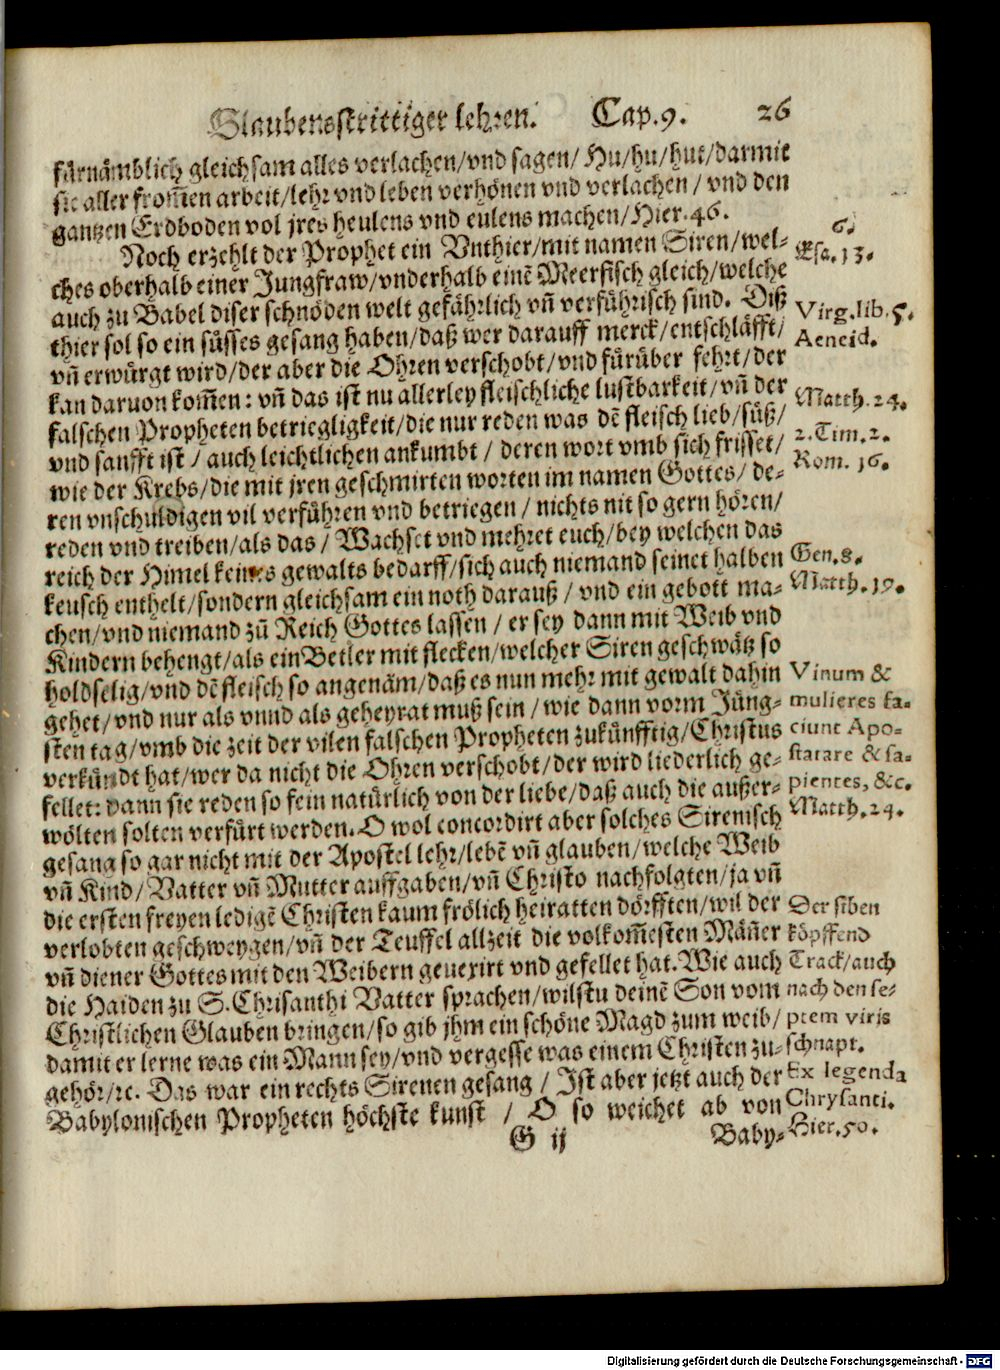 Glaubensstrittiger lehren. Cap.9. 26
fürnämblich gleichsam alles verlachen/vnd sagen/ Hu/hu/hui/darmit
sie aller from̃en arbeit/lehr vnd leben verhönen vnd verlachen/vnd den
gantzen Erdboden vol jres heulens vnd eulens machen/Hier.46.
Noch erzehlt der Prophet ein Vnthier/mit namen Siren/wel-
ches oberhalb einer Jungfraw/vnderhalb einē Meerfisch gleich/welche
auch zu Babel diser schnöden welt gefährlich vñ verführisch sind. Diß
thier sol so ein süsses gesang haben/daß wer darauff merck/entschläfft/
vñ erwürgt wird/der aber die Ohren verschobt/vnd fürüber fehrt/der
kan daruon kom̃en: vñ das ist nu allerley fleischliche lustbarkeit/vñ der
falschen Propheten betriegligkeit/die nur reden was dē fleisch lieb/süß/
vnd sanfft ist/auch leichtlichen ankumbt/deren wort vmb sich frisset/
wie der Krebs/die mit jren geschmirten worten im namen Gottes/de-
ren vnschuldigen vil verführen vnd betriegen/nichts nit so gern hören/
reden vnd treiben/als das/Wachset vnd mehret euch/bey welchen das
reich der Himel keines gewalts bedarff/sich auch niemand seinet halben
keusch enthelt/sondern gleichsam ein noth darauß/vnd ein gebott ma-
chen/vnd niemand zů Reich Gottes lassen/er sey dann mit Weib vnd
Kindern behengt/als ein Betler mit flecken/welcher Siren geschwätz so
holdselig/vnd dē fleisch so angenäm/daß es nun mehr mit gewalt dahin
gehet/vnd nur als vnnd als geheyrat muß sein/wie dann vorm Jüng-
sten tag/vmb die zeit der vilen falschen Propheten zukünfftig/Christus
verkündt hat/wer da nicht die Ohren verschobt/der wird liederlich ge-
fellet: dann sie reden so fein natürlich von der liebe/daß auch die außer-
wölten solten verfürt werden. O wol concordirt aber solches Sirenisch
gesang so gar nicht mit der Apostel lehr/lebē vñ glauben/welche Weib
vñ Kind/Vatter vñ Mutter auffgaben/vñ Christo nachfolgten/ja vñ
die ersten freyen ledigē Christen kaum frölich heiratten dörfften/wil der
verlobten geschweygen/vñ der Teuffel allzeit die volkom̃esten Mäñer
vñ diener Gottes mit den Weibern geuexirt vnd gefellet hat. Wie auch
die Haiden zu S.Chrisanthi Vatter sprachen/wilstu deinē Son vom
Christlichen Glauben bringen/so gib jhm ein schöne Magd zum weib/
damit er lerne was ein Mann sey/vnd vergesse was einem Christen zu-
gehör/rc. Das war ein rechts Sirenen gesang/Ist aber jetzt auch der
Babylonischen Propheten höchste kunst/O so weichet ab von
G ij Baby-
6.
Esa.13.
Virg.lib.5.
Aeneid.
Matth.24.
2.Tim.2.
Rom.16.
Gen.8.
Matth.19.
Vinum &
mulieres fa-
ciunt Apo-
starare & sa-
pientes, &c.
Matth.24.
Der siben
köpffend
Track/auch
nach den se-
ptem viris
schnapt.
Ex legenda
Chrysanti.
Hier.50.
Digitalisierung gefördert durch die Deutsche Forschungsgemeinschaft - DFG